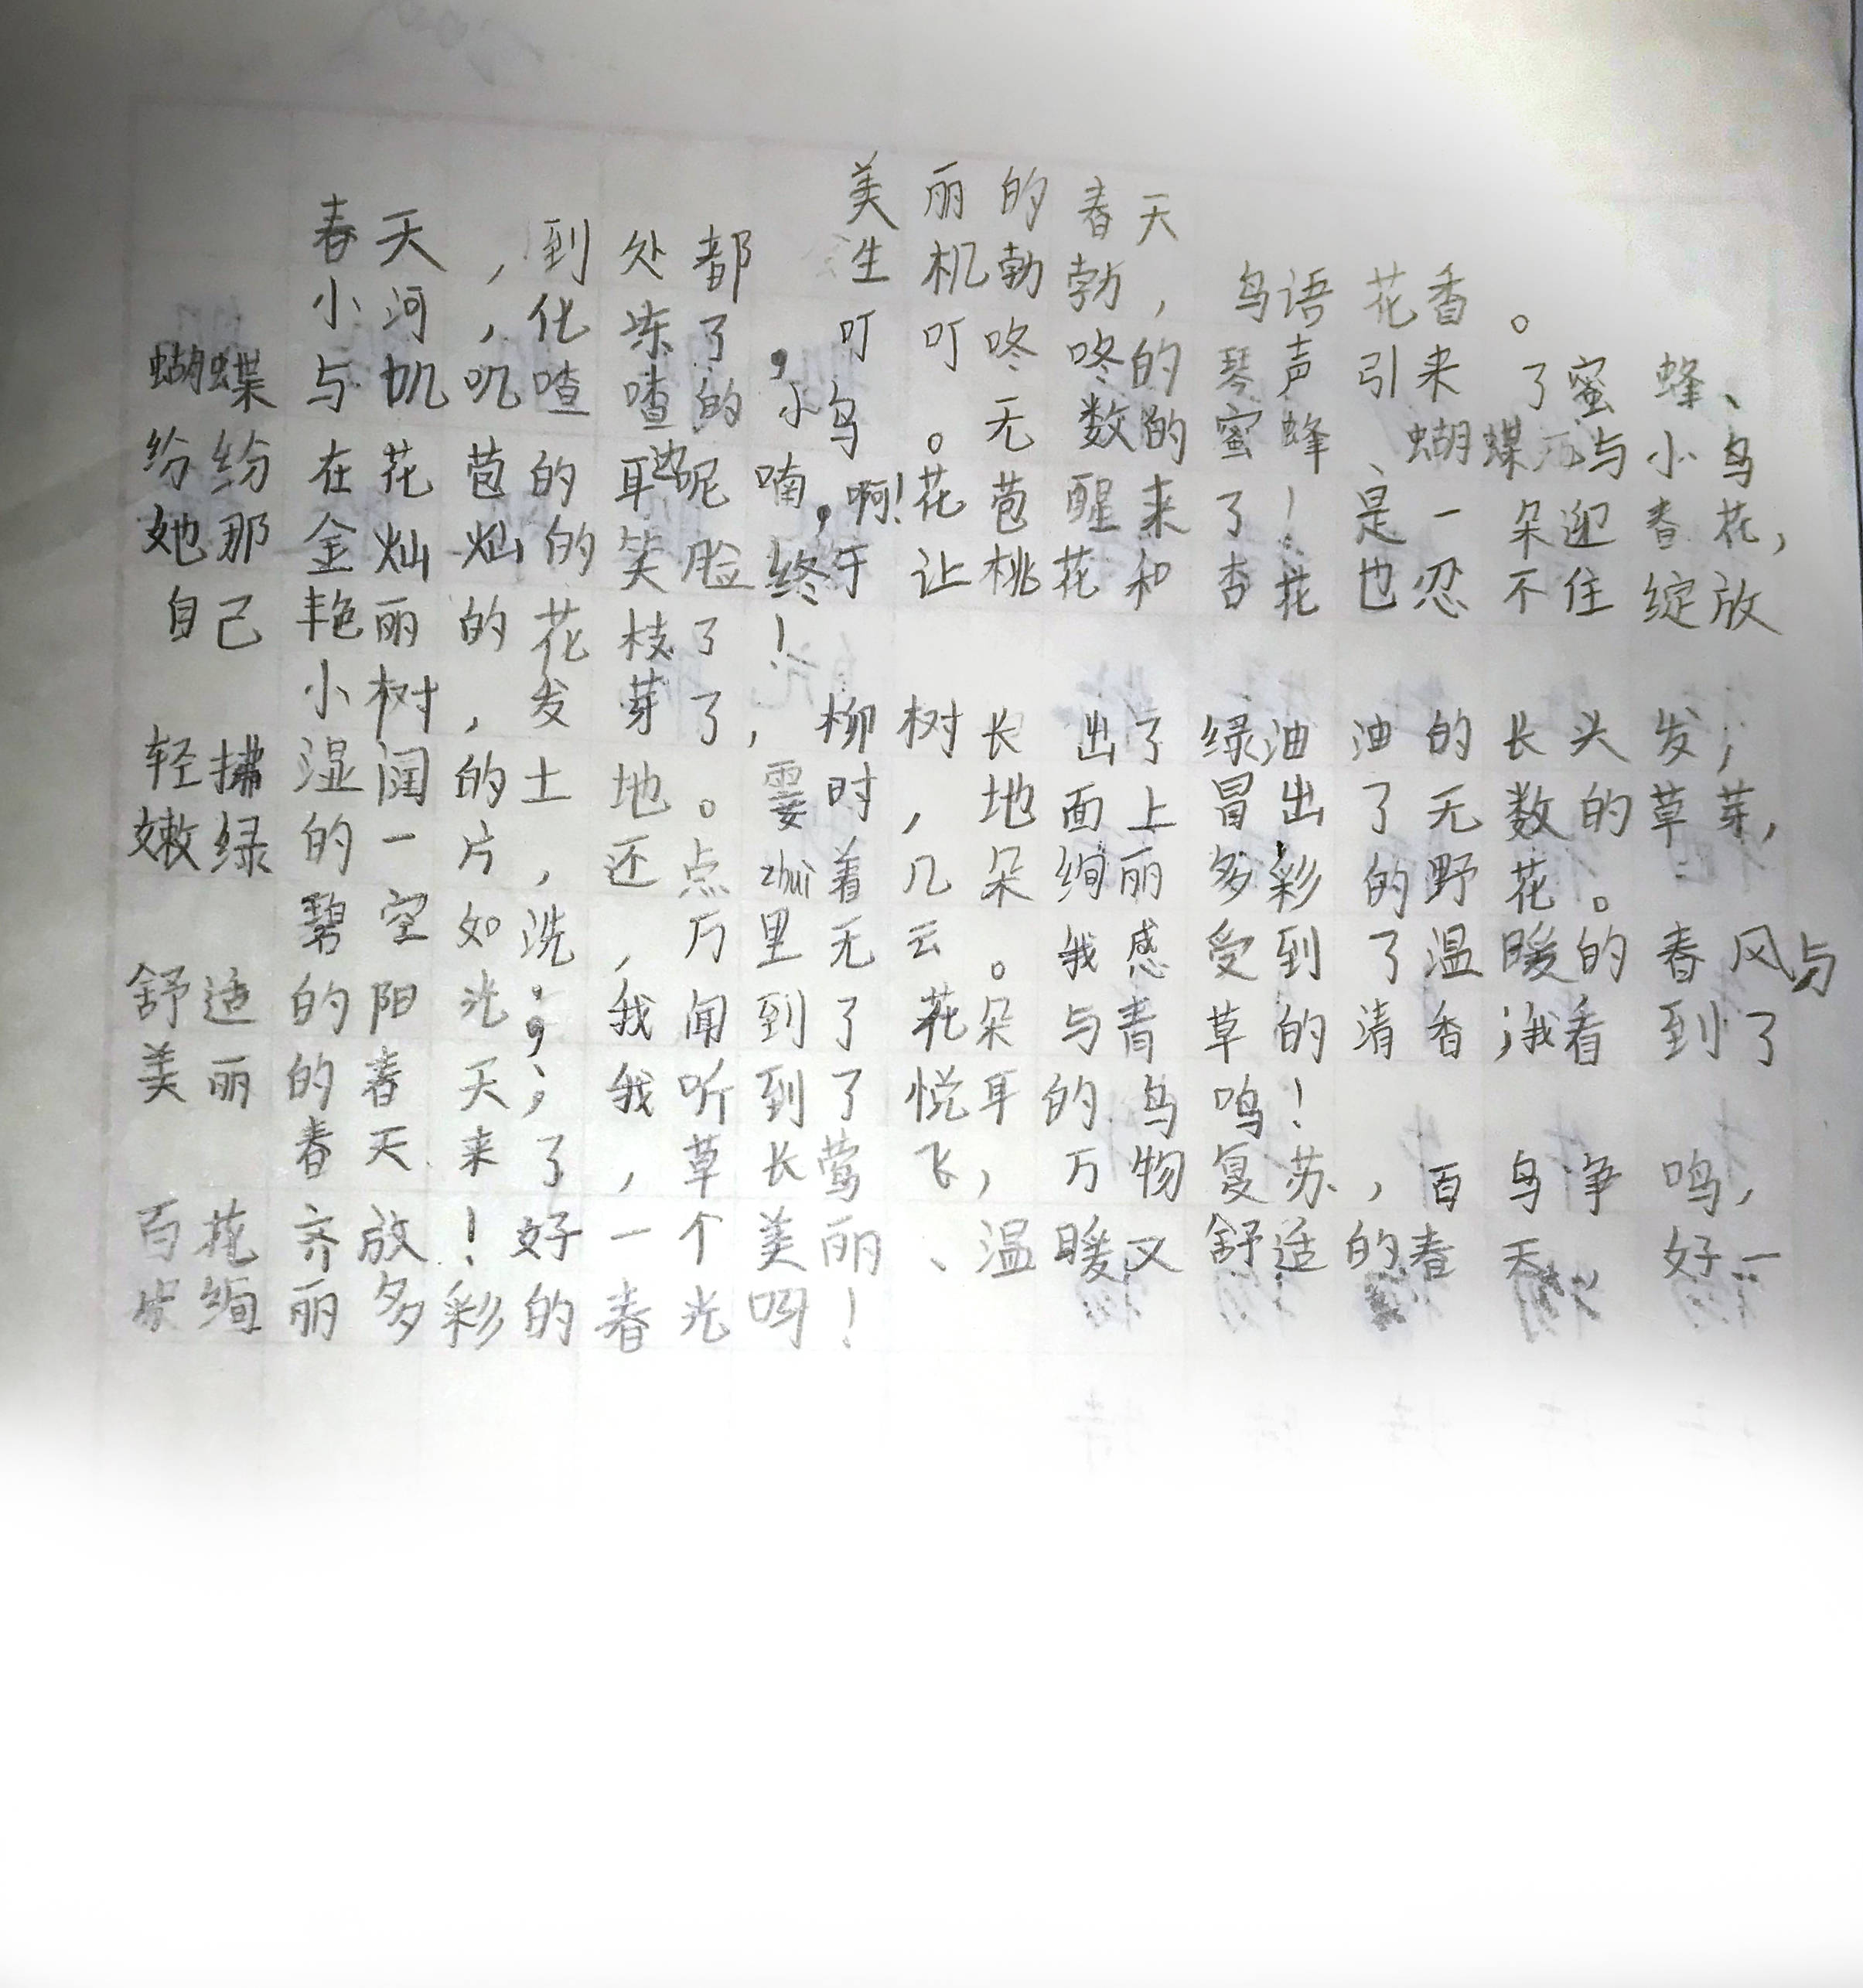 美丽的春天
春天，到处都生机勃勃，鸟语花香。
小河，化冻了，叮叮咚咚的琴声引来了蜜蜂、
蝴蝶与叽叽喳喳的小鸟。无数的蜜蜂、蝴蝶与小鸟
纷纷在花苞的耳边呢喃，啊！花苞醒来了！是一朵迎春花，
她那金灿灿的笑脸终于让桃花和杏花也忍不住绽放
自己艳丽的花枝了！
小树，发芽了，柳树长出了绿油油的长头发；
轻拂湿润的土地。霎时，地面上冒出了无数的草芽，
嫩绿的一片，还点zhuì着几朵绚丽多彩的野花。
碧空如洗，万里无云。我感受到了温暖的春风与
舒适的阳光；我闻到了花朵与青草的清香；我看到了
美丽的春天；我听到了悦耳的鸟鸣！
春天来了，草长莺飞，万物复苏，百鸟争鸣，
百花齐放！好一个美丽、温暖又舒适的春天，好一
步绚丽多彩的春光吗！